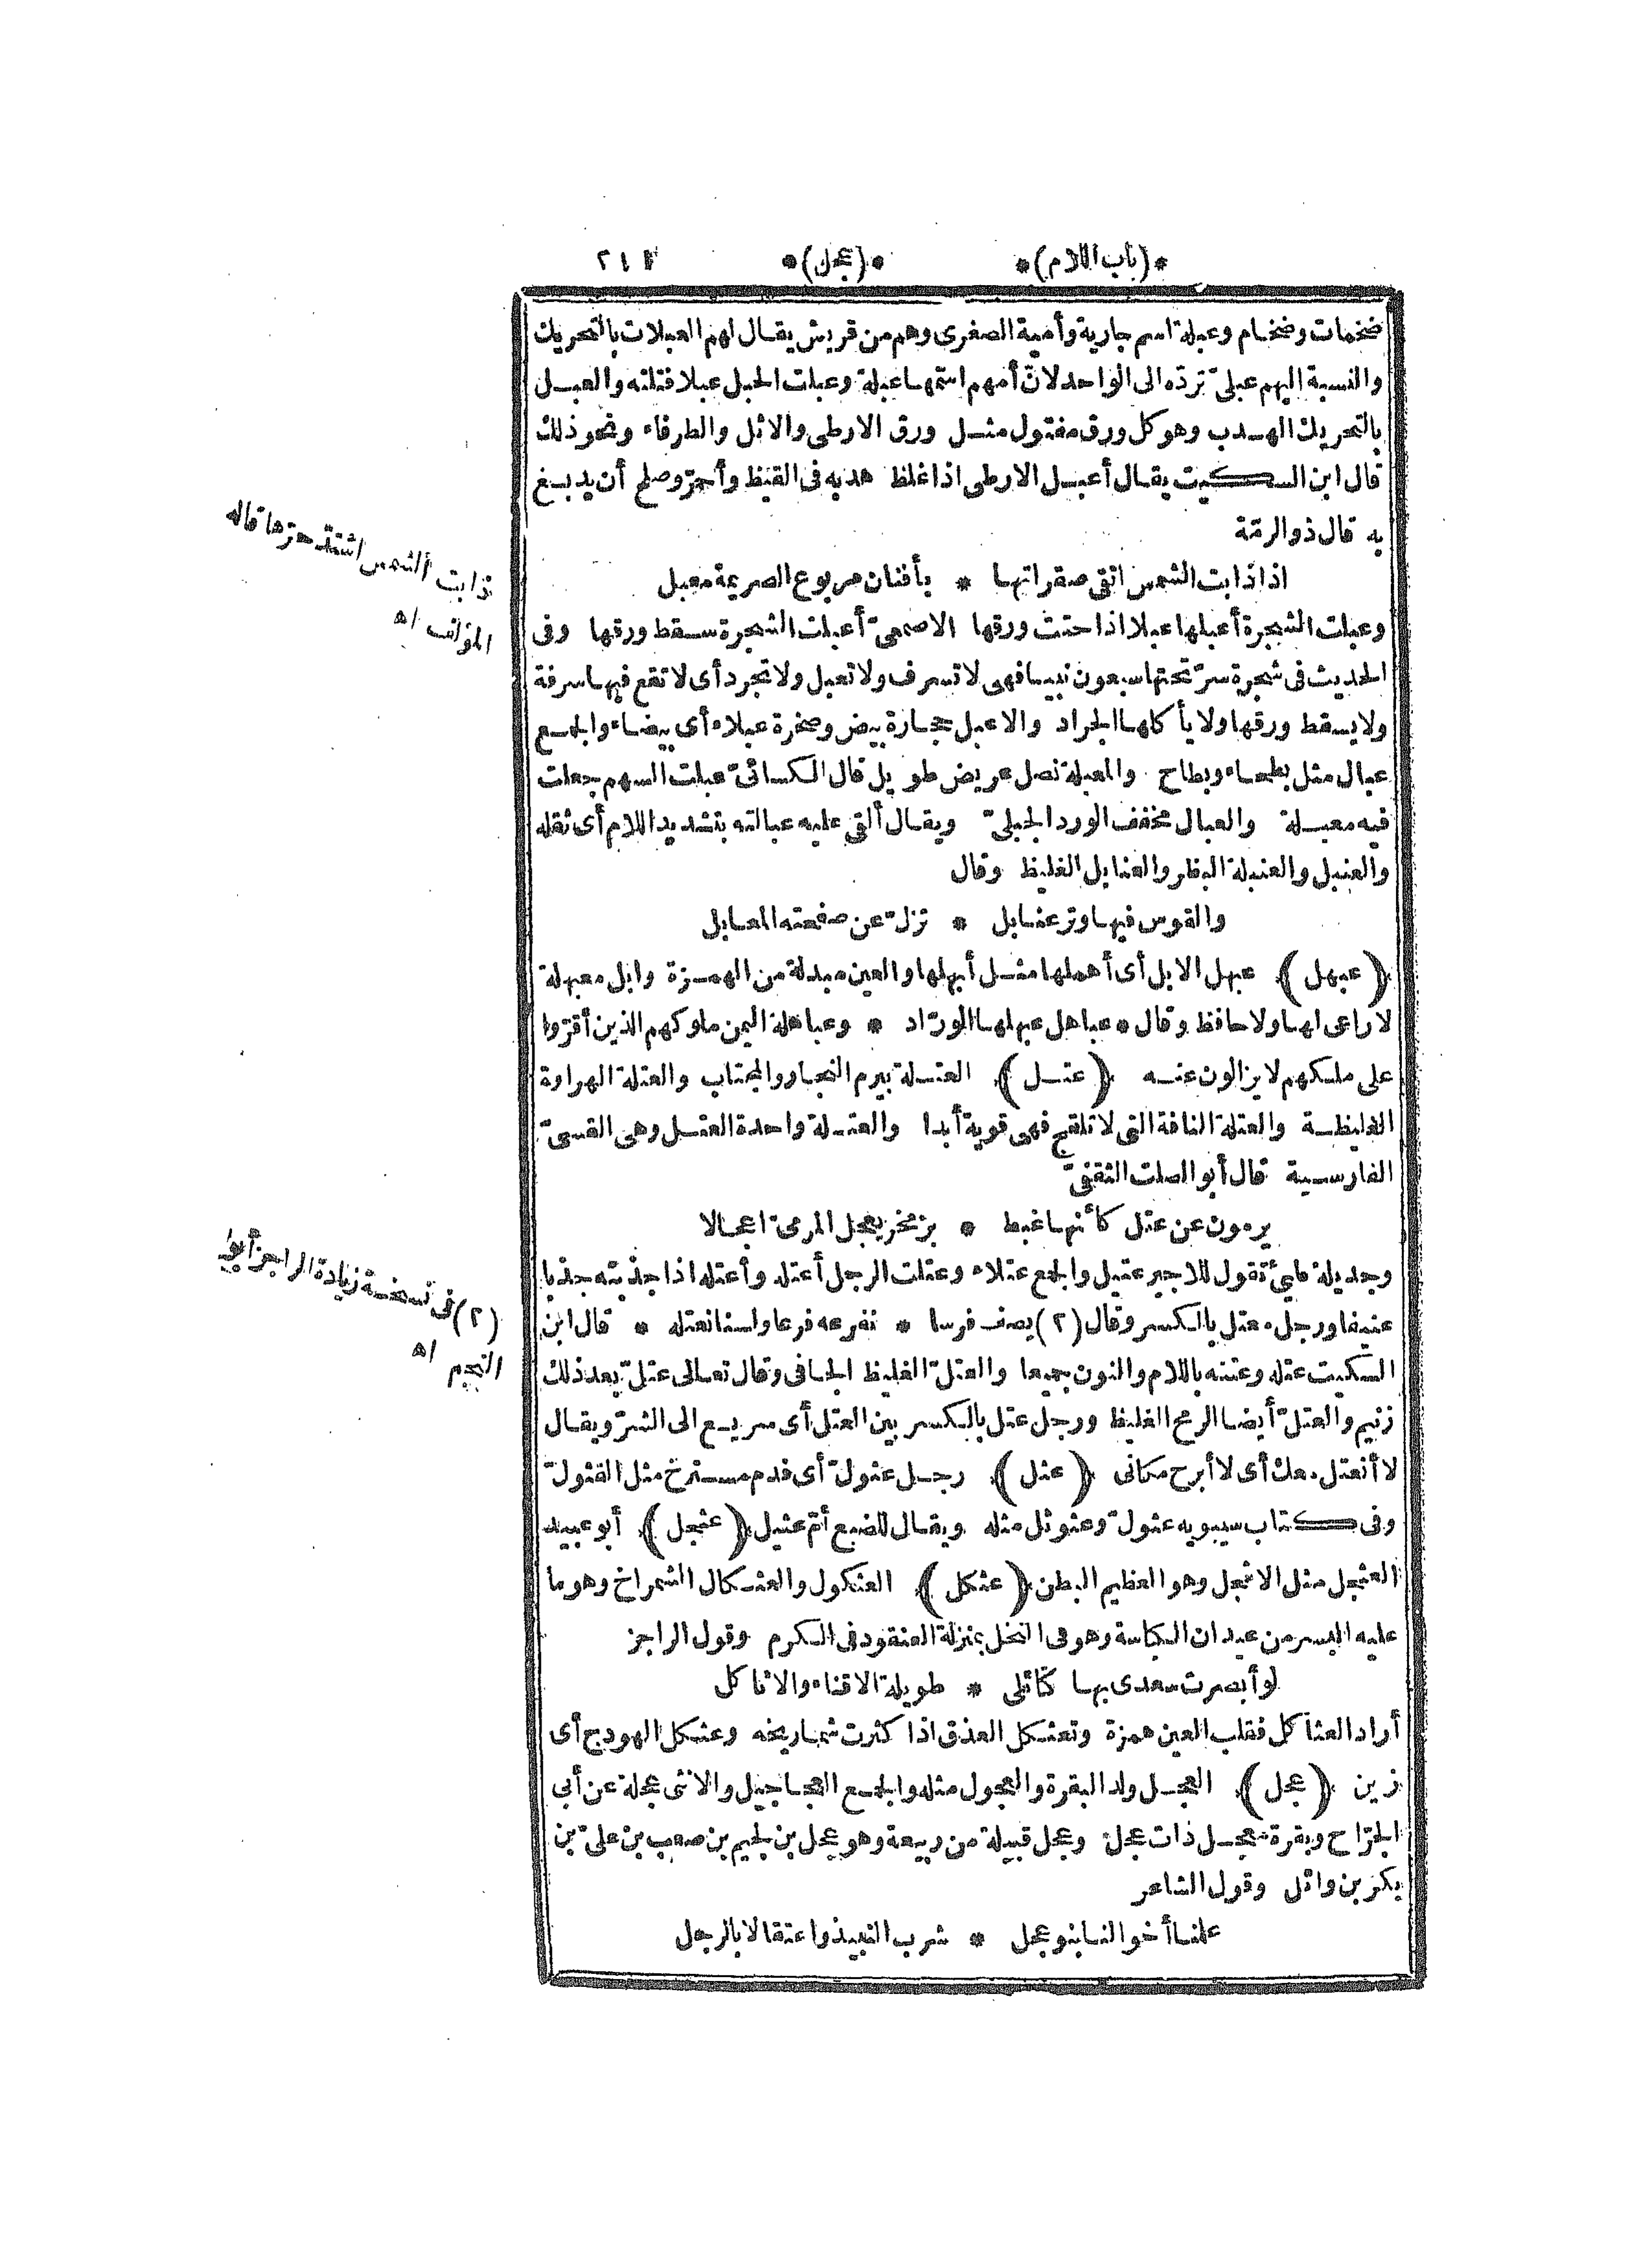 *(باب اللام)* *(عجل)* ٢١١
ضخمات وضخام وعبلة اسم جارية وأمية الصغرى وهم من قريش يقال لهم العبلات بالتحريك
والنسبة اليهم عبلىّ تردّه الى الواحد لانّ أمهم اسمها عبلة وعبلت الحبل عبلا فتلته والعبل
بالتحريك الهدب وهو كل ورق مفتول مثل ورق الارطى والاثل والطرفاء ونحو ذلك
قال ابن السكيت يقال أعبل الارطى اذا غلظ هدبه فى القيظ وأحمرّ وصلح أن يدبغ
به قال ذو الرمّة
اذا ذابت الشمس اتقى صقراتها * بأفنان مربوع الصريمة معبل
ذابت الشمس اشتدّ حرّها قاله
المؤلف اه
وعبلت الشجرة أعبلها عبلا اذا حتت ورقها الاصمعىّ أعبلت الشجرة سقط ورقها وفى
الحديث فى شجرة سرّ تحتها سبعون نبيا فهى لا تسرف ولا تعبل ولا تجرد أى لا تقع فيها سرفة
ولا يسقط ورقها ولا يأكلها الجراد والاعبل حجارة بيض وصخرة عبلاء أى بيضاء والجمع
عبال مثل بطحاء وبطاح والمعبلة نصل عريض طويل قال الكسائىّ عبلت السهم جعلت
فيه معبلة والعبال مخفف الورد الجبلىّ ويقال ألقى عليه عبالته بتشديد اللام أى ثقله
والعنبل والعنبلة البظر والعنابل الغليظ وقال
والقوس فيها وتر عنابل * تزلّ عن صفحته المعابل
﴿عبهل﴾ عبهل الابل أى أهملها مثل أبهلها والعين مبدلة من الهمزة وابل معبهلة
لا راعى لها ولا حافظ وقال * عباهل عبهلها الورّاد * وعباهلة اليمن ملوكهم الذين أقرّوا
على ملكهم لا يزالون عنه ﴿عتل﴾ العتلة بيرم النجار والمجتاب والعتلة الهراوة
الغليظة والعتلة الناقة التى لا تلقح فهى قوية أبدا والعتلة واحدة العتل وهى القسىّ
الفارسية قال أبو الصلت الثقفىّ
يرمون عن عتل كأنها غبط * بزمخر يعجل المرمىّ اعجالا
وجديلة طيئ تقول للاجير عتيل والجمع عتلاء وعتلت الرجل أعتله وأعتله اذا جذبته جذبا
عنيفا ورجل معتل بالكسر وقال (٢) يصف فرسا * نفرعه فرعا ولسنا نعتله * قال ابن
(٢) فى نسخة زيادة الراجز أبو
النجم اه
السكيت عتله وعتنه باللام والنون جميعا والعتلّ الغليظ الجافى وقال تعالى عتلّ بعد ذلك
زنيم والعتلّ أيضا الرمح الغليظ ورجل عتل بالكسر بين العتل أى سريع الى الشرّ ويقال
لا أنعتل معك أى لا أبرح مكانى ﴿عثل﴾ رجل عثولّ أى فدم مسترخ مثل القثولّ
وفى كتاب سيبويه عثولّ وعثوثل مثله ويقال للضبع أمّ عثيل ﴿عثجل﴾ أبو عبيد
العثجل مثل الاثجل وهو العظيم البطن ﴿عثكل﴾ العثكول والعثكال الشمراخ وهو ما
عليه البسر من عيدان الكباسة وهو فى النخل بمنزلة العنقود فى الكرم وقول الراجز
لو أبصرت سعدى بها كتائلى * طويلة الاقناء والاثاكل
أراد العثاكل فقلب العين همزة وتعثكل العذق اذا كثرت شماريخه وعثكل الهودج أى
زين ﴿عجل﴾ العجل ولد البقرة والعجول مثله والجمع العجاجيل والانثى عجلة عن أبى
الجرّاح وبقرة معجل ذات عجل وعجل قبيلة من ربيعة وهو عجل بن لجيم بن صعب بن علىّ بن
بكر بن وائل وقول الشاعر
علمنا أخوالنا بنو عجل * شرب النبيذ واعتقالا بالرجل